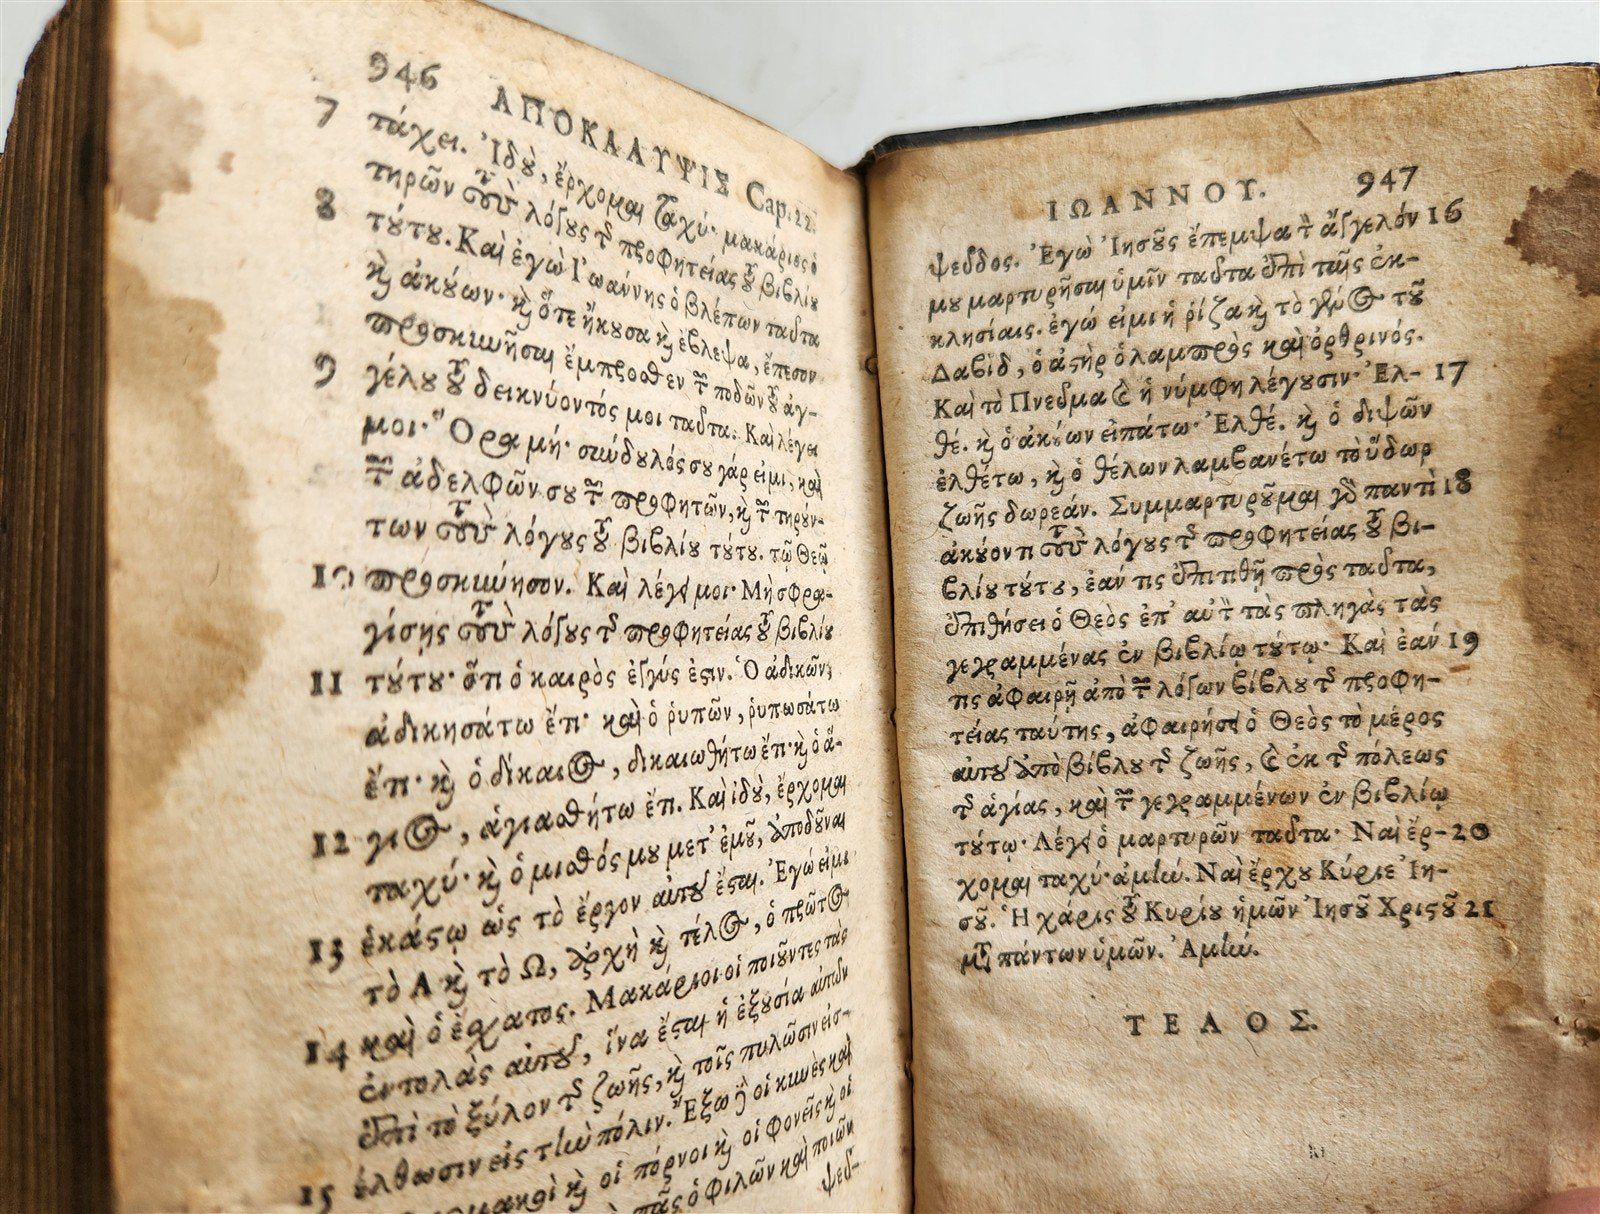 946 ΑΠΟΚΑΛΥΨΙΣ Cap. 22.
7 τάχει. Ἰδοὺ, ἔρχομαι ταχύ· μακάριος ὁ
τηρῶν τοὺς λόγους τῆς προφητείας τοῦ βιβλίου
8 τούτου. Καὶ ἐγὼ Ἰωάννης ὁ βλέπων ταῦτα
καὶ ἀκούων· καὶ ὅτε ἤκουσα καὶ ἔβλεψα, ἔπεσον
προσκυνῆσαι ἔμπροσθεν τῶν ποδῶν τοῦ ἀγ-
9 γέλου τοῦ δεικνύοντός μοι ταῦτα. Καὶ λέγει
μοι· Ὅρα μή· σύνδουλός σου γάρ εἰμι, καὶ
τῶν ἀδελφῶν σου τῶν προφητῶν, καὶ τῶν τηρούν-
των τοὺς λόγους τοῦ βιβλίου τούτου. τῷ Θεῷ
10 προσκύνησον. Καὶ λέγει μοι· Μὴ σφρα-
γίσῃς τοὺς λόγους τῆς προφητείας τοῦ βιβλίου
11 τούτου· ὅτι ὁ καιρὸς ἐγγύς ἐστιν. Ὁ ἀδικῶν,
ἀδικησάτω ἔτι· καὶ ὁ ῥυπῶν, ῥυπωσάτω
ἔτι· καὶ ὁ δίκαιος, δικαιωθήτω ἔτι· καὶ ὁ ἅ-
12 γιος, ἁγιασθήτω ἔτι. Καὶ ἰδοὺ, ἔρχομαι
ταχύ· καὶ ὁ μισθός μου μετ' ἐμοῦ, ἀποδοῦναι
13 ἑκάστῳ ὡς τὸ ἔργον αὐτοῦ ἔσται. Ἐγώ εἰμι
τὸ Α καὶ τὸ Ω, ἀρχὴ καὶ τέλος, ὁ πρῶτος
14 καὶ ὁ ἔσχατος. Μακάριοι οἱ ποιοῦντες τὰς
ἐντολὰς αὐτοῦ, ἵνα ἔσται ἡ ἐξουσία αὐτῶν
ἐπὶ τὸ ξύλον τῆς ζωῆς, καὶ τοῖς πυλῶσιν εἰσ-
15 έλθωσιν εἰς τὴν πόλιν. Ἔξω δὲ οἱ κύνες καὶ
καὶ οἱ πόρνοι καὶ οἱ φονεῖς καὶ οἱ
πᾶς ὁ φιλῶν καὶ ποιῶν
ψεδ-
ΙΩΑΝΝΟΥ. 947
ψεῦδος. Ἐγὼ Ἰησοῦς ἔπεμψα τὸν ἄγγελόν 16
μου μαρτυρῆσαι ὑμῖν ταῦτα ἐπὶ ταῖς ἐκ-
κλησίαις. ἐγώ εἰμι ἡ ῥίζα καὶ τὸ γένος τοῦ
Δαβὶδ, ὁ ἀστὴρ ὁ λαμπρὸς καὶ ὀρθρινός.
Καὶ τὸ Πνεῦμα καὶ ἡ νύμφη λέγουσιν· Ἐλ- 17
θέ. καὶ ὁ ἀκούων εἰπάτω· Ἐλθέ. καὶ ὁ διψῶν
ἐλθέτω, καὶ ὁ θέλων λαμβανέτω τὸ ὕδωρ
ζωῆς δωρεάν. Συμμαρτυροῦμαι γὰρ παντὶ 18
ἀκούοντι τοὺς λόγους τῆς προφητείας τοῦ βι-
βλίου τούτου, ἐάν τις ἐπιτιθῇ πρὸς ταῦτα,
ἐπιθήσει ὁ Θεὸς ἐπ' αὐτὸν τὰς πληγὰς τὰς
γεγραμμένας ἐν βιβλίῳ τούτῳ· Καὶ ἐάν 19
τις ἀφαιρῇ ἀπὸ τῶν λόγων βίβλου τῆς προφη-
τείας ταύτης, ἀφαιρήσει ὁ Θεὸς τὸ μέρος
αὐτοῦ ἀπὸ βίβλου τῆς ζωῆς, καὶ ἐκ τῆς πόλεως
τῆς ἁγίας, καὶ τῶν γεγραμμένων ἐν βιβλίῳ
τούτῳ· Λέγει ὁ μαρτυρῶν ταῦτα· Ναὶ ἔρ- 20
χομαι ταχύ· ἀμήν. Ναὶ ἔρχου Κύριε Ἰη-
σοῦ. Ἡ χάρις τοῦ Κυρίου ἡμῶν Ἰησοῦ Χριστοῦ 21
μετὰ πάντων ὑμῶν. Ἀμήν.
ΤΕΛΟΣ.